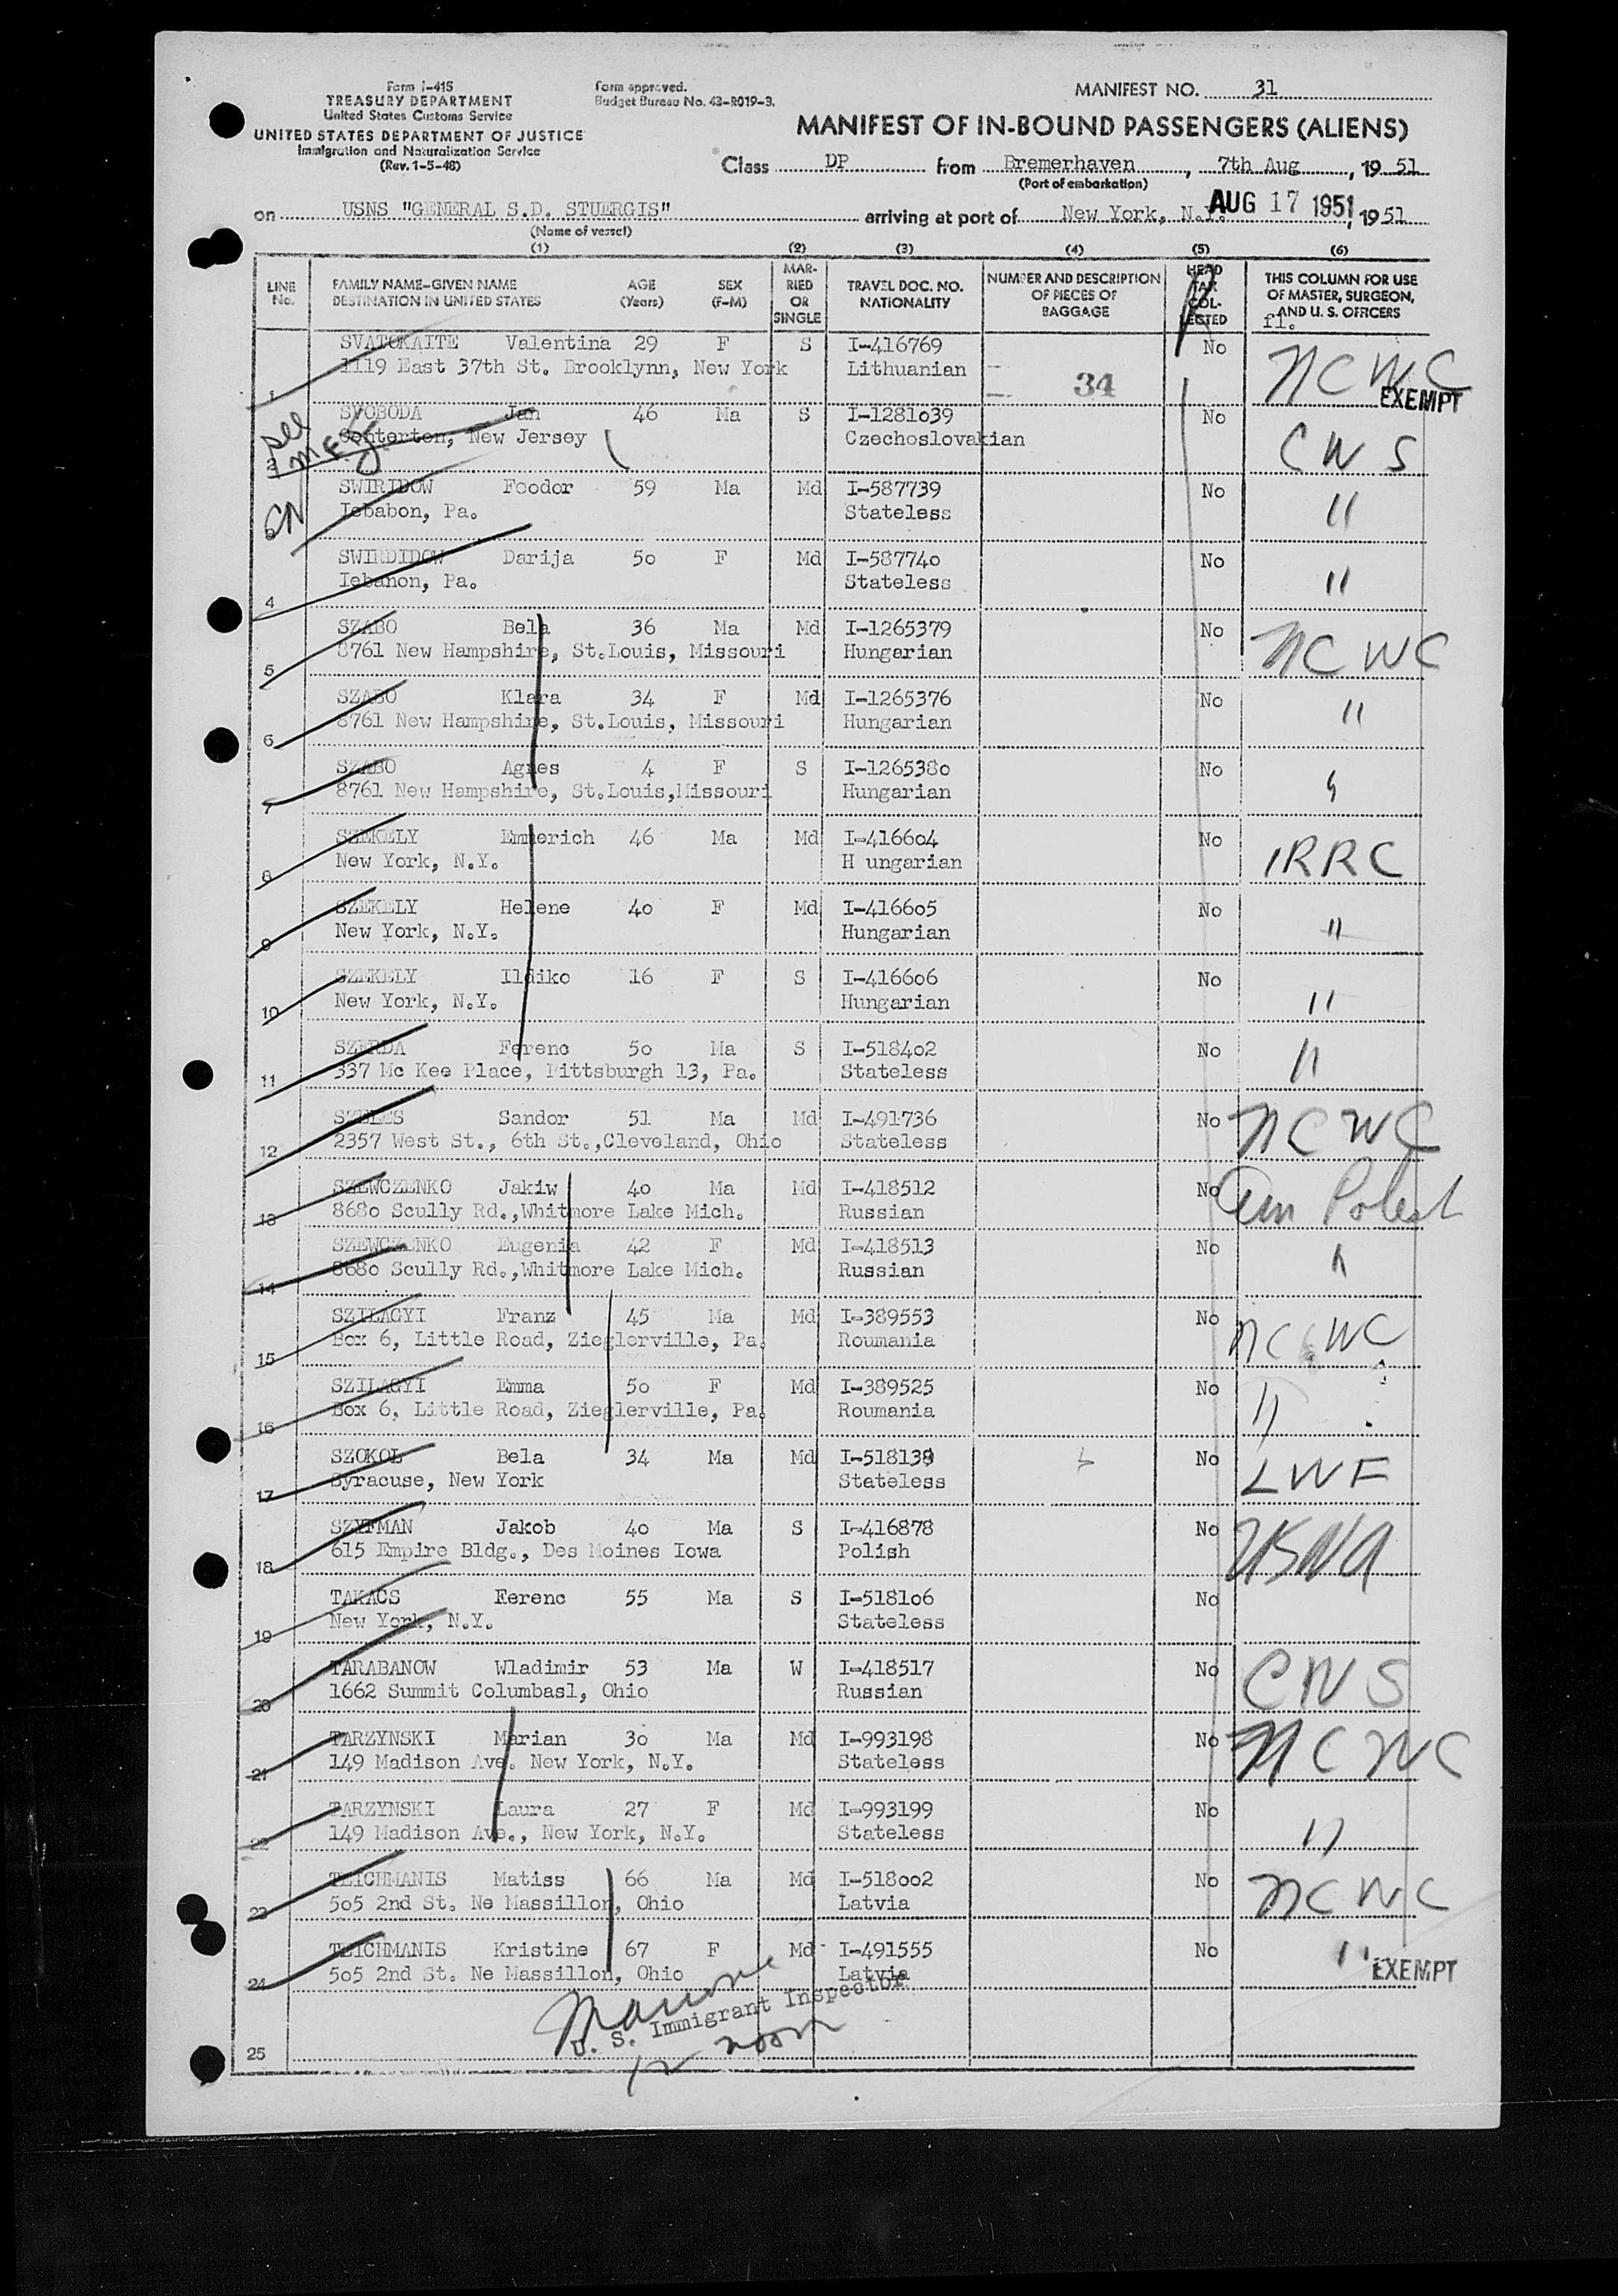 Form I-415
TREASURY DEPARTMENT
United States Customs Service
UNITED STATES DEPARTMENT OF JUSTICE
Immigration and Naturalization Service
(Rev. 1-5-48)
Form approved.
Budget Bureau No. 43-R019-3.
MANIFEST NO. 31
MANIFEST OF IN-BOUND PASSENGERS (ALIENS)
Class DP from Bremerhaven, 7th Aug, 1951
(Port of embarkation)
on USNS "GENERAL S.D. STURGIS" arriving at port of New York, N.Y. AUG 17 1951, 1951
(Name of vessel)
(1) (2) (3) (4) (5) (6)
LINE No. FAMILY NAME-GIVEN NAME DESTINATION IN UNITED STATES AGE (Years) SEX (F-M) MARRIED OR SINGLE TRAVEL DOC. NO. NATIONALITY NUMBER AND DESCRIPTION OF PIECES OF BAGGAGE HEAD TAX COLLECTED THIS COLUMN FOR USE OF MASTER, SURGEON, AND U. S. OFFICERS
fl.
1 SVATOKAITE Valentina 29 F S I-416769 No NCWC
1119 East 37th St. Brooklynn, New York Lithuanian 34 EXEMPT
see
2 SVOBODA Jan 46 Ma S I-1281039 No CWS
Centerton, New Jersey Czechoslovakian
3 SWIRIDOW Feodor 59 Ma Md I-587739 No "
Lebabon, Pa. Stateless
4 SWIRDIDOW Darija 50 F Md I-587740 No "
Lebanon, Pa. Stateless
5 SZABO Bela 36 Ma Md I-1265379 No NCWC
8761 New Hampshire, St.Louis, Missouri Hungarian
6 SZABO Klara 34 F Md I-1265376 No "
8761 New Hampshire, St.Louis, Missouri Hungarian
7 SZABO Agnes 4 F S I-1265380 No "
8761 New Hampshire, St.Louis,Missouri Hungarian
8 SZEKELY Emmerich 46 Ma Md I-416604 No IRRC
New York, N.Y. H ungarian
9 SZEKELY Helene 40 F Md I-416605 No "
New York, N.Y. Hungarian
10 SZEKELY Ildiko 16 F S I-416606 No "
New York, N.Y. Hungarian
11 SZERDA Ferenc 50 Ma S I-518402 No "
337 Mc Kee Place, Pittsburgh 13, Pa. Stateless
12 SZELES Sandor 51 Ma Md I-491736 No NCWC
2357 West St., 6th St.,Cleveland, Ohio Stateless
13 SZEWCZENKO Jakiw 40 Ma Md I-418512 No Am Polish
8680 Scully Rd.,Whitmore Lake Mich. Russian
14 SZEWCZENKO Eugenia 42 F Md I-418513 No "
8680 Scully Rd.,Whitmore Lake Mich. Russian
15 SZILAGYI Franz 45 Ma Md I-389553 No NCWC
Box 6, Little Road, Zieglerville, Pa. Roumania
16 SZILAGYI Emma 50 F Md I-389525 No "
Box 6, Little Road, Zieglerville, Pa. Roumania
17 SZOKOL Bela 34 Ma Md I-518139 No LWF
Syracuse, New York Stateless
18 SZYFMAN Jakob 40 Ma S I-416878 No USNA
615 Empire Bldg., Des Moines Iowa Polish
19 TAKACS Ferenc 55 Ma S I-518106 No
New York, N.Y. Stateless
20 TARABANOW Wladimir 53 Ma W I-418517 No CWS
1662 Summit Columbasl, Ohio Russian
21 TARZYNSKI Marian 30 Ma Md I-993198 No NCWC
149 Madison Ave. New York, N.Y. Stateless
22 TARZYNSKI Laura 27 F Md I-993199 No "
149 Madison Ave., New York, N.Y. Stateless
23 TEICHMANIS Matiss 66 Ma Md I-518002 No NCWC
505 2nd St. Ne Massillon, Ohio Latvia
24 TEICHMANIS Kristine 67 F Md I-491555 No "
505 2nd St. Ne Massillon, Ohio Latvia EXEMPT
U. S. Immigrant Inspector
12 noon
25